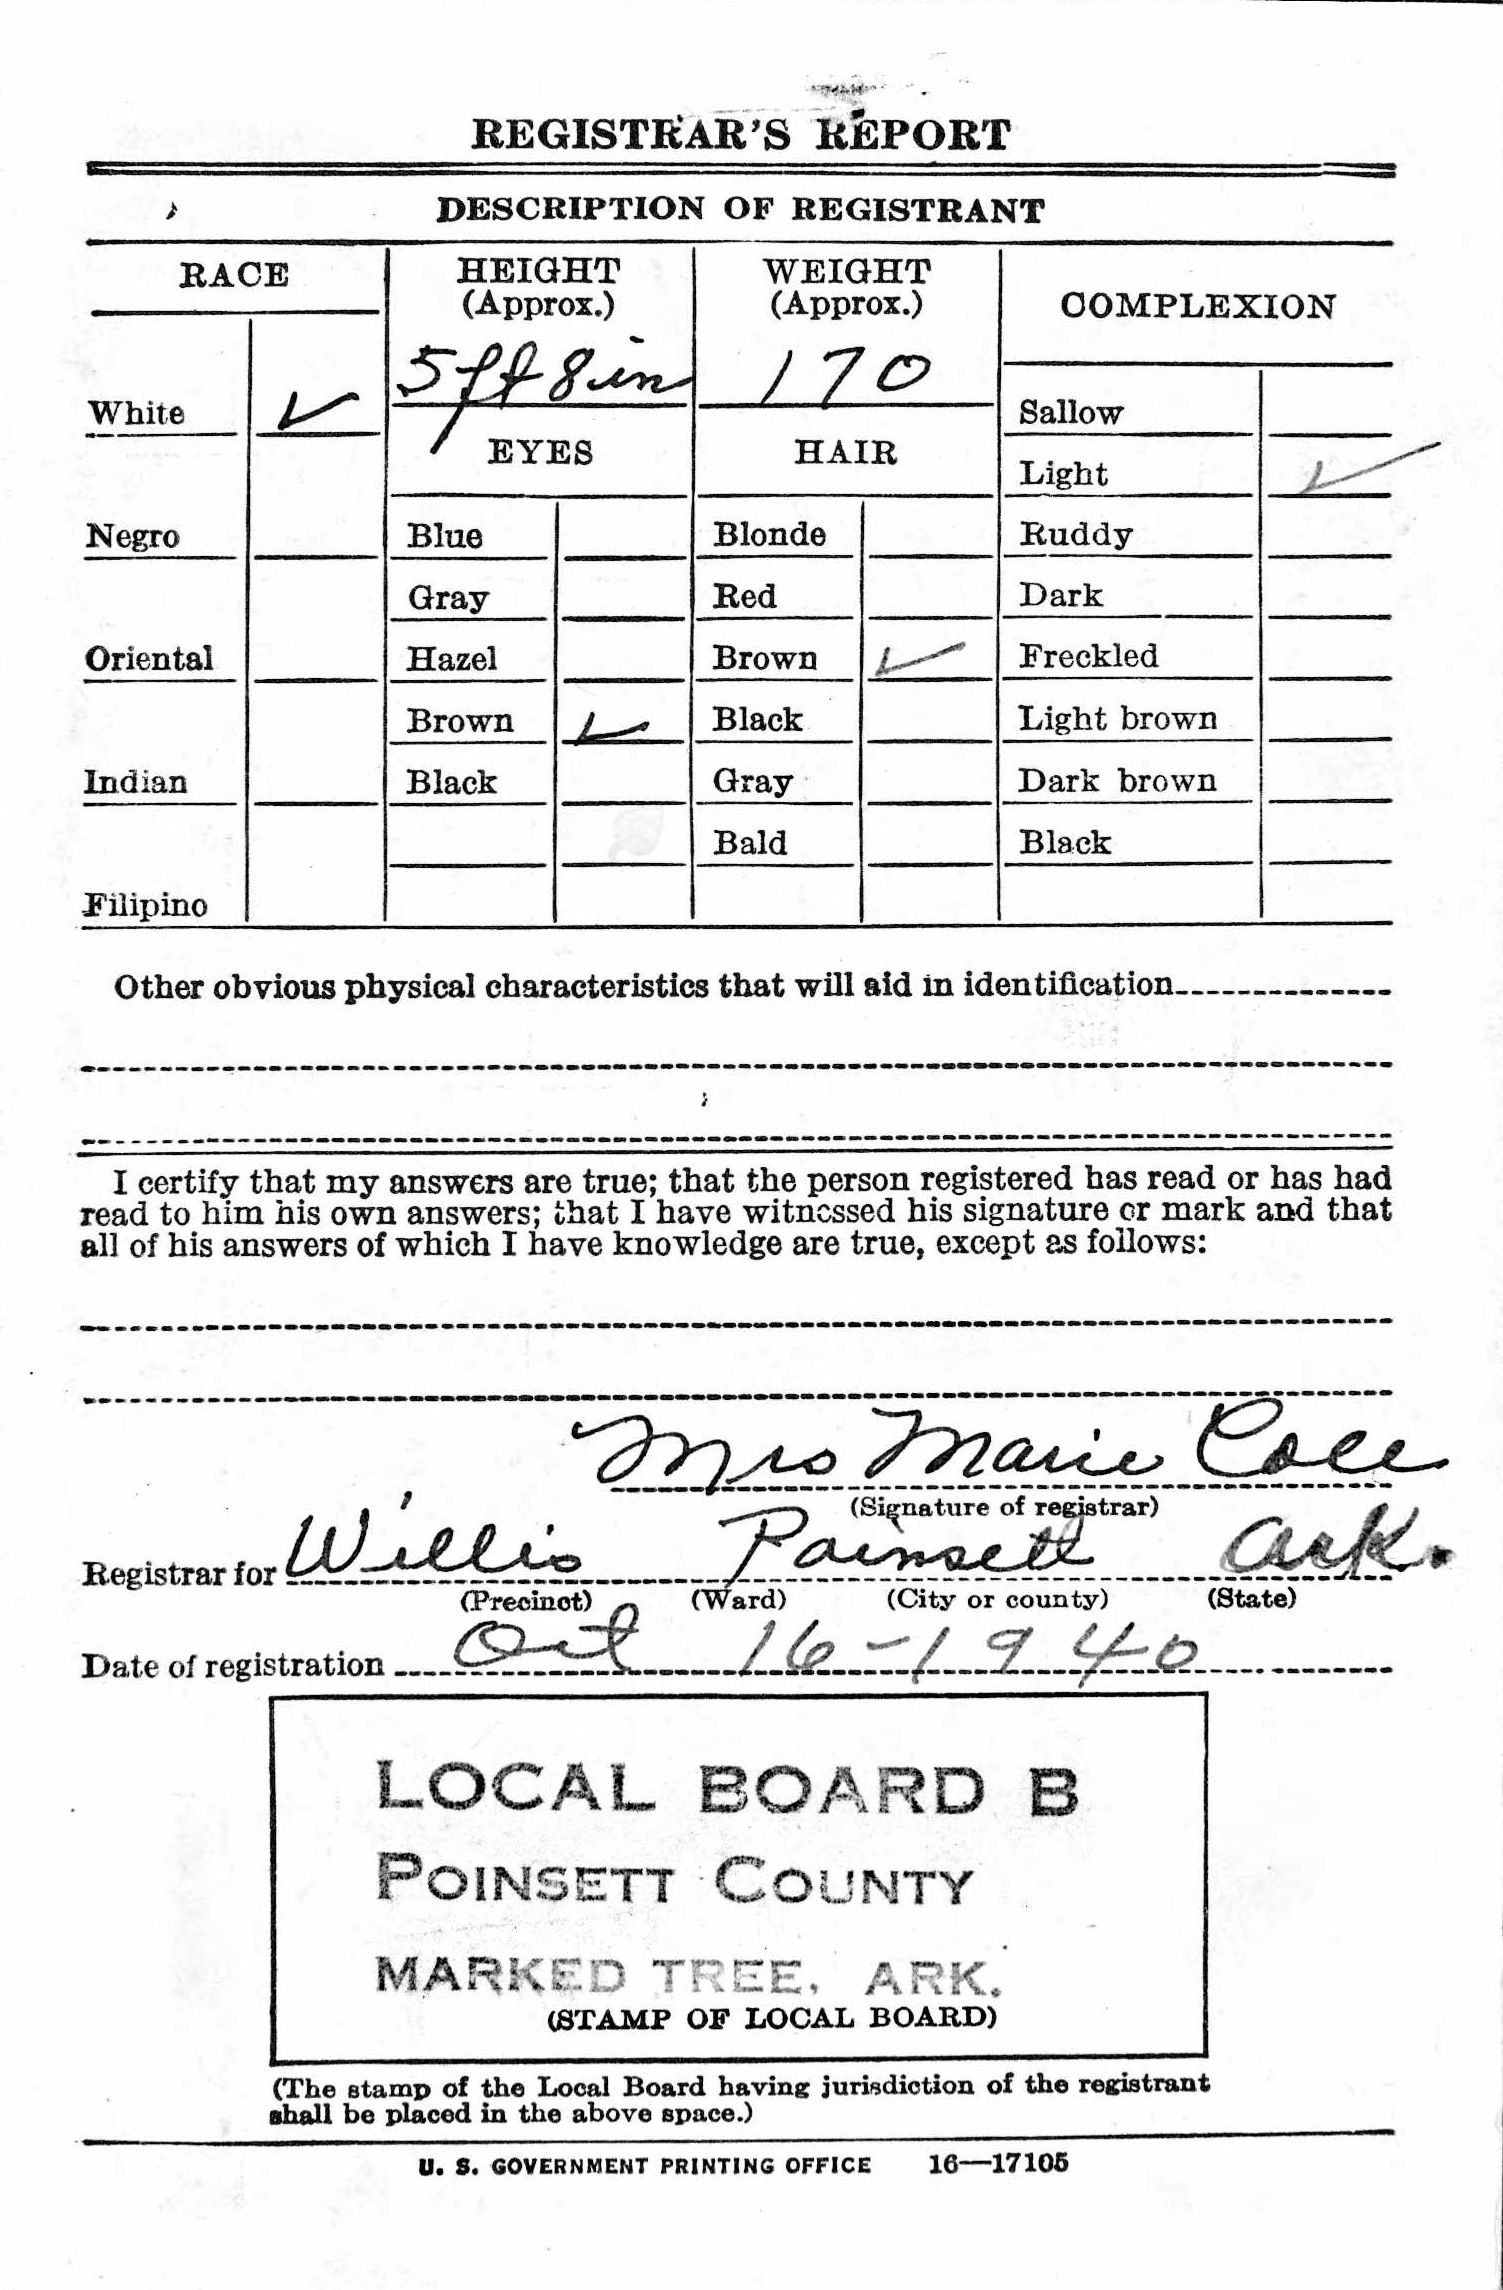 REGISTRAR'S REPORT
DESCRIPTION OF REGISTRANT
RACE HEIGHT (Approx.) WEIGHT (Approx.) COMPLEXION
5 ft 8 in 170
White ✓ Sallow
EYES HAIR
Light ✓
Negro Blue Blonde Ruddy
Gray Red Dark
Oriental Hazel Brown ✓ Freckled
Brown ✓ Black Light brown
Indian Black Gray Dark brown
Bald Black
Filipino
Other obvious physical characteristics that will aid in identification
I certify that my answers are true; that the person registered has read or has had
read to him his own answers; that I have witnessed his signature or mark and that
all of his answers of which I have knowledge are true, except as follows:
Mrs Marie Cole
(Signature of registrar)
Registrar for Willis Poinsett Ark.
(Precinct) (Ward) (City or county) (State)
Date of registration Oct 16-1940
LOCAL BOARD B
POINSETT COUNTY
MARKED TREE, ARK.
(STAMP OF LOCAL BOARD)
(The stamp of the Local Board having jurisdiction of the registrant
shall be placed in the above space.)
U. S. GOVERNMENT PRINTING OFFICE 16—17105